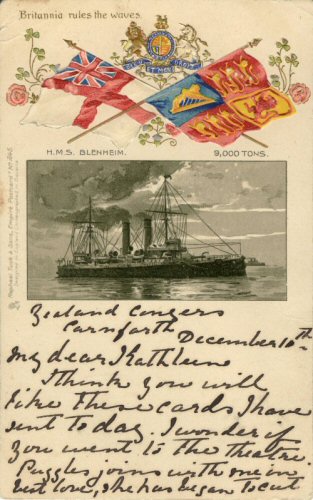 Britannia rules the waves.
DIEU ET MON DROIT
H.M.S. BLENHEIM. 9,000 TONS.
Raphael Tuck & Sons, Empire Postcard
Zealand Congers
Carnforth
December 10th
My dear Kathleen
I think you will
like these cards I have
sent to day. I wonder if
you went to the theatre.
Puggles joins with me in
best love, she has began to cut